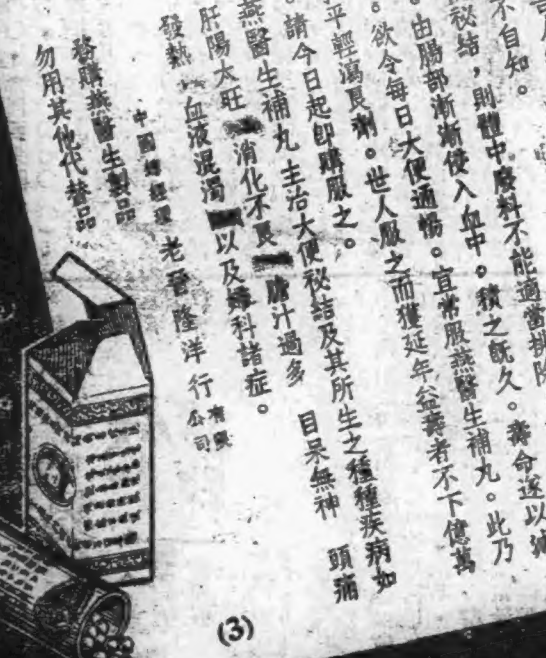 不自知。
秘结，則體中廢料不能適當排除
由腸部漸漸侵入血中。積之旣久。壽命遂以減
。欲令每日大便通暢。宜常服燕醫生補丸。此乃
平輕瀉良劑。世人服之而獲延年益壽者不下億萬
。請今日起卽購服之。
燕醫生補丸 主治大便秘結及其所生之種種疾病如
肝陽太旺 消化不良 膽汁過多 目呆無神 頭痛
發熱 血液混濁 以及婦科諸症。
中國總經理 老晉隆洋行 有限公司
務購燕醫生製品
勿用其他代替品
(3)